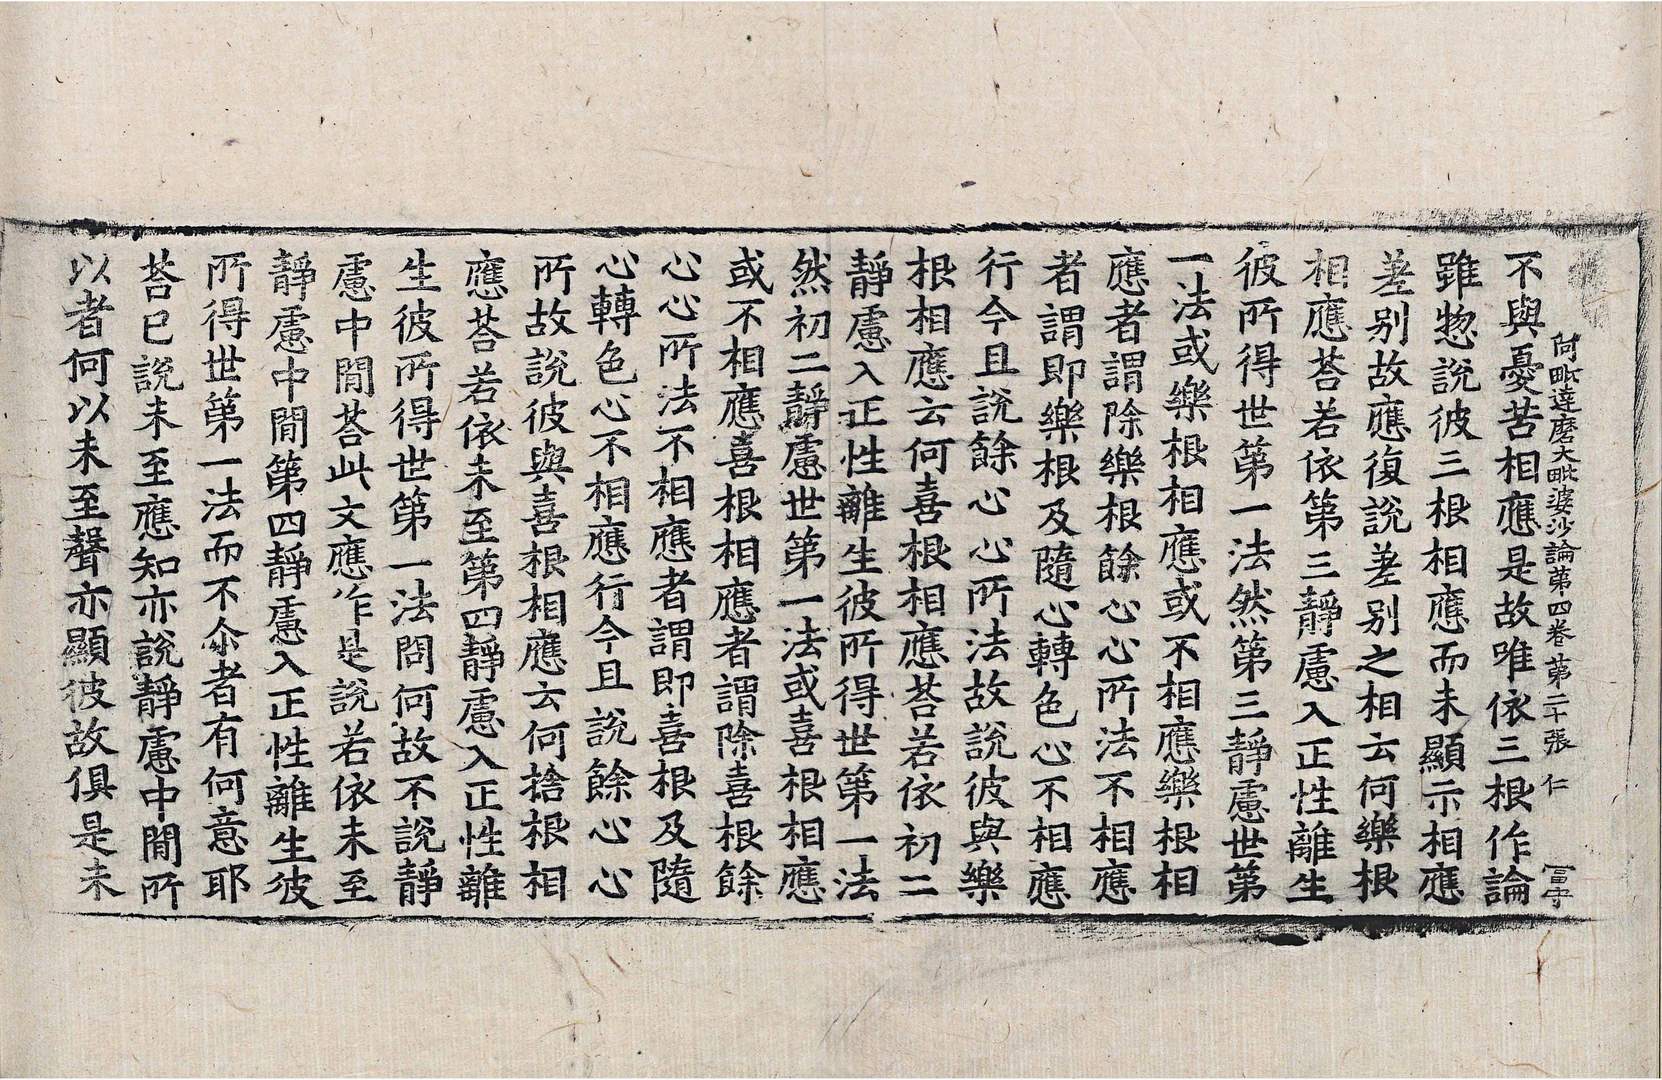 阿毗達磨大毗婆沙論第四卷 第二十張 仁 冨守
不與憂苦相應是故唯依三根作論
雖惣說彼三根相應而未顯示相應
差别故應復說差别之相云何樂根
相應荅若依第三靜慮入正性離生
彼所得世第一法然第三靜慮世第
一法或樂根相應或不相應樂根相
應者謂除樂根餘心心所法不相應
者謂即樂根及隨心轉色心不相應
行今且說餘心心所法故說彼與樂
根相應云何喜根相應荅若依初二
靜慮入正性離生彼所得世第一法
然初二靜慮世第一法或喜根相應
或不相應喜根相應者謂除喜根餘
心心所法不相應者謂即喜根及隨
心轉色心不相應行今且說餘心心
所故說彼與喜根相應云何捨根相
應荅若依未至第四靜慮入正性離
生彼所得世第一法問何故不說靜
慮中閒荅此文應作是說若依未至
靜慮中閒第四靜慮入正性離生彼
所得世第一法而不尒者有何意耶
荅已說未至應知亦說靜慮中閒所
以者何以未至聲亦顯彼故俱是未